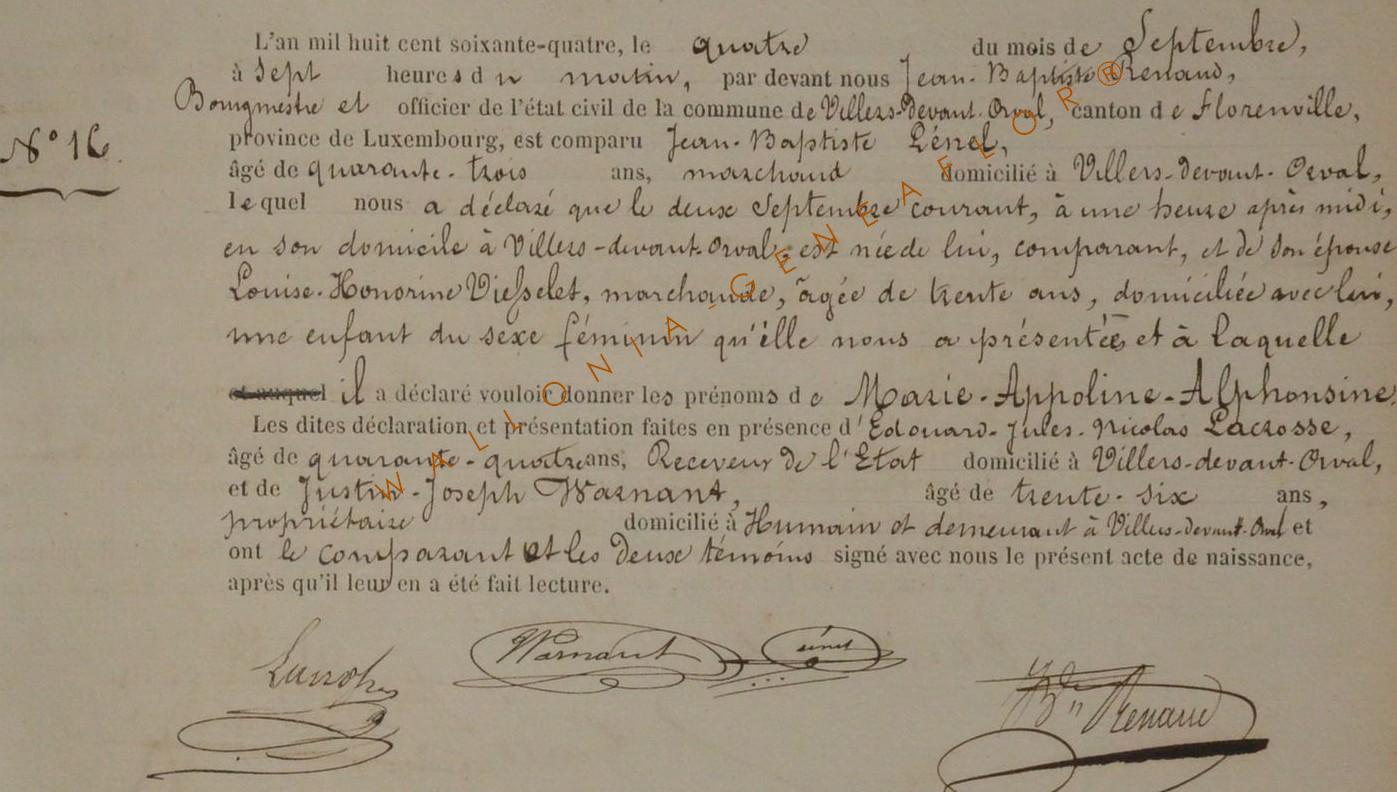 L'an mil huit cent soixante-quatre, le quatre du mois de Septembre,
à Sept heures du matin, par devant nous Jean-Baptiste Renaud,
Bourgmestre et officier de l'état civil de la commune de Villers-Devant-Orval, canton de Florenville,
N° 16
province de Luxembourg, est comparu Jean-Baptiste Lénel,
âgé de quarante-trois ans, marchand domicilié à Villers-devant-Orval,
lequel nous a déclaré que le deux Septembre courant, à une heure après midi,
en son domicile à Villers-devant-Orval, est née de lui, comparant, et de son épouse
Louise-Honorine Viesselet, marchande, âgée de trente ans, domiciliée avec lui,
une enfant du sexe féminin qu'elle nous a présentée et à laquelle
et auquel il a déclaré vouloir donner les prénoms de Marie-Appoline-Alphonsine
Les dites déclaration et présentation faites en présence d'Edouard-Jules-Nicolas Lacrosse,
âgé de quarante-quatre ans, Receveur de l'Etat domicilié à Villers-devant-Orval,
et de Justin-Joseph Warnant, âgé de trente-six ans,
propriétaire domicilié à Humain et demeurant à Villers-devant-Orval et
ont le comparant et les deux témoins signé avec nous le présent acte de naissance,
après qu'il leur en a été fait lecture.
Lacrosse Warnant Lénel
Renaud
WALLONIA-GENEAFLOR®